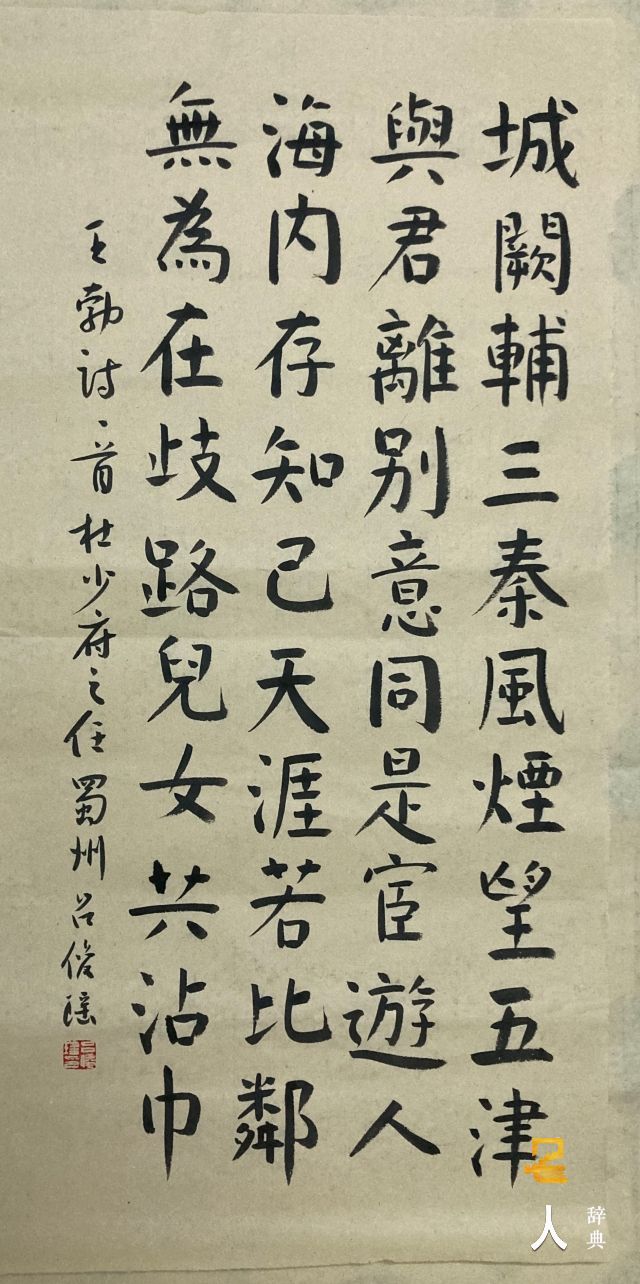 城闕輔三秦風煙望五津
與君離別意同是宦遊人
海内存知己天涯若比鄰
無為在歧路兒女共沾巾
王勃詩一首杜少府之任蜀州呂俊瑤
人
辞典